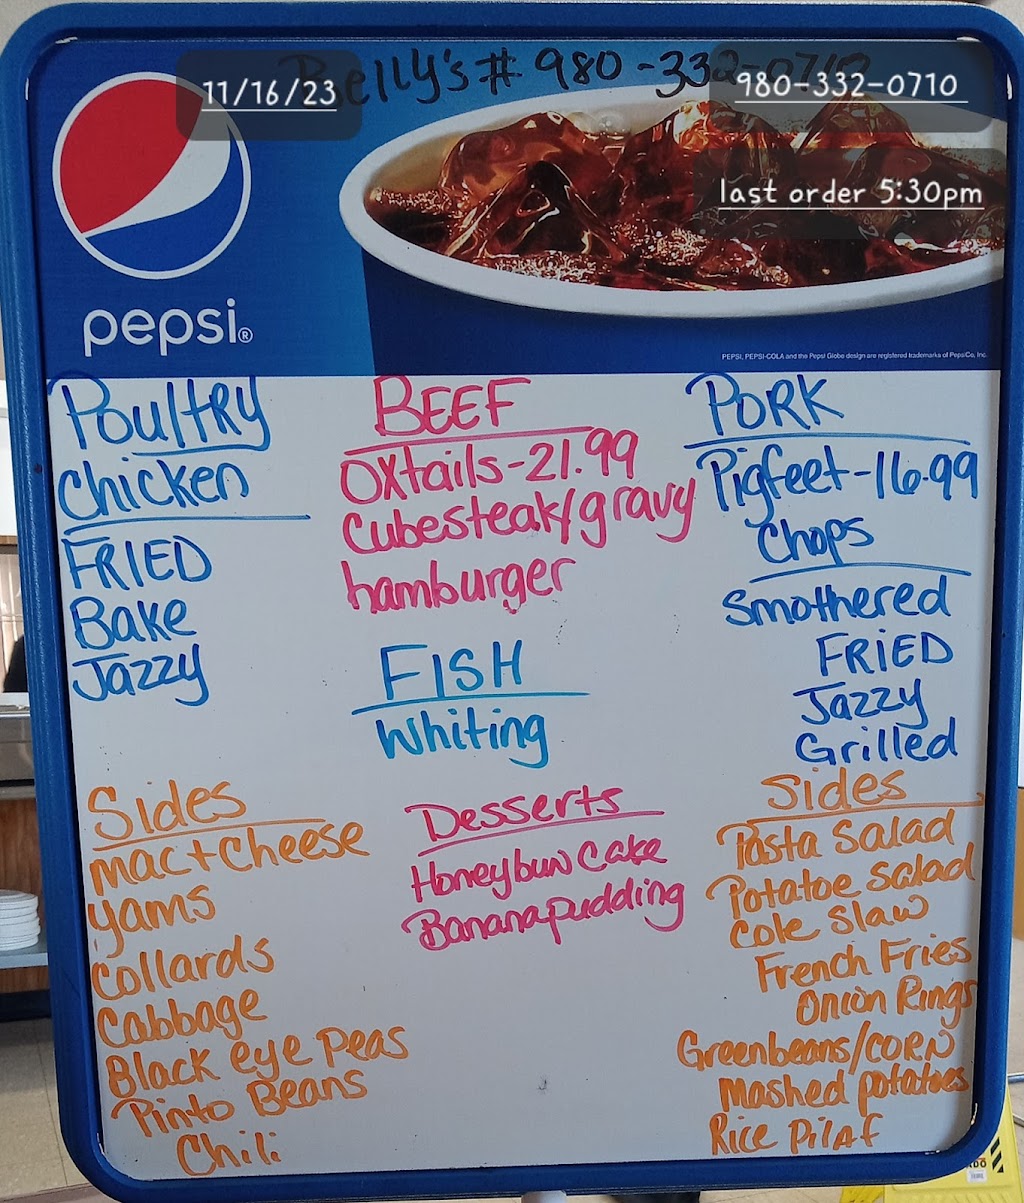 Belly's # 980-332-0710
11/16/23
980-332-0710
last order 5:30pm
pepsi®
PEPSI, PEPSI-COLA and the Pepsi Globe design are registered trademarks of PepsiCo, Inc.
Poultry
Chicken
FRIED
Bake
Jazzy
BEEF
Oxtails-21.99
Cubesteak/gravy
hamburger
FISH
Whiting
PORK
Pigfeet-16.99
Chops
Smothered
FRIED
Jazzy
Grilled
Sides
mac+cheese
yams
Collards
Cabbage
Black eye Peas
Pinto Beans
Chili
Desserts
Honeybun Cake
Bananapudding
Sides
Pasta Salad
Potatoe salad
Cole Slaw
French Fries
Onion Rings
Greenbeans/CORN
Mashed potatoes
Rice Pilaf